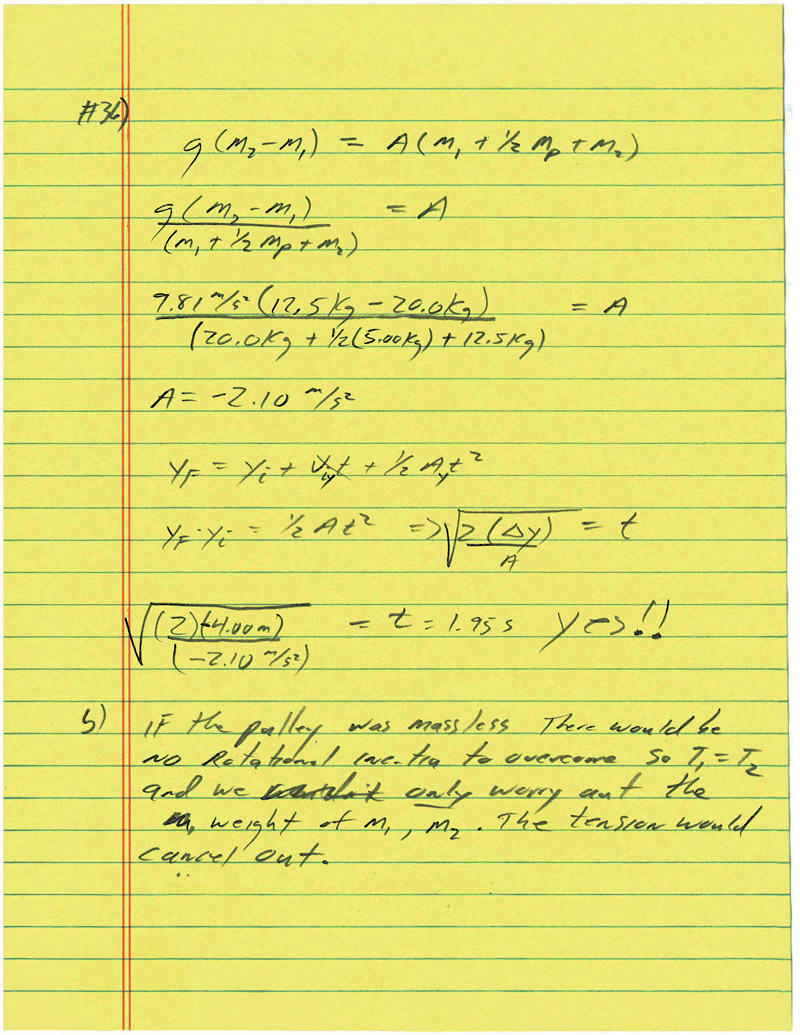 #36)
g(m₂-m₁) = A(m₁ + ½ Mp + m₂)
g(m₂-m₁) = A
(m₁ + ½ Mp + m₂)
9.81 m/s² (12.5 Kg - 20.0 Kg) = A
(20.0 Kg + ½(5.00 Kg) + 12.5 Kg)
A = -2.10 m/s²
YF = Yi + Viyt + ½ Ayt²
YF - Yi = ½ At² => √2(Δy) = t
A
√(2)(-4.00m) = t = 1.95 s yes!!
(-2.10 m/s²)
b) IF the pulley was massless There would be
NO Rotational inertia to overcome So T₁ = T₂
and we only worry aut the
weight of m₁, m₂. The tension would
cancel out.